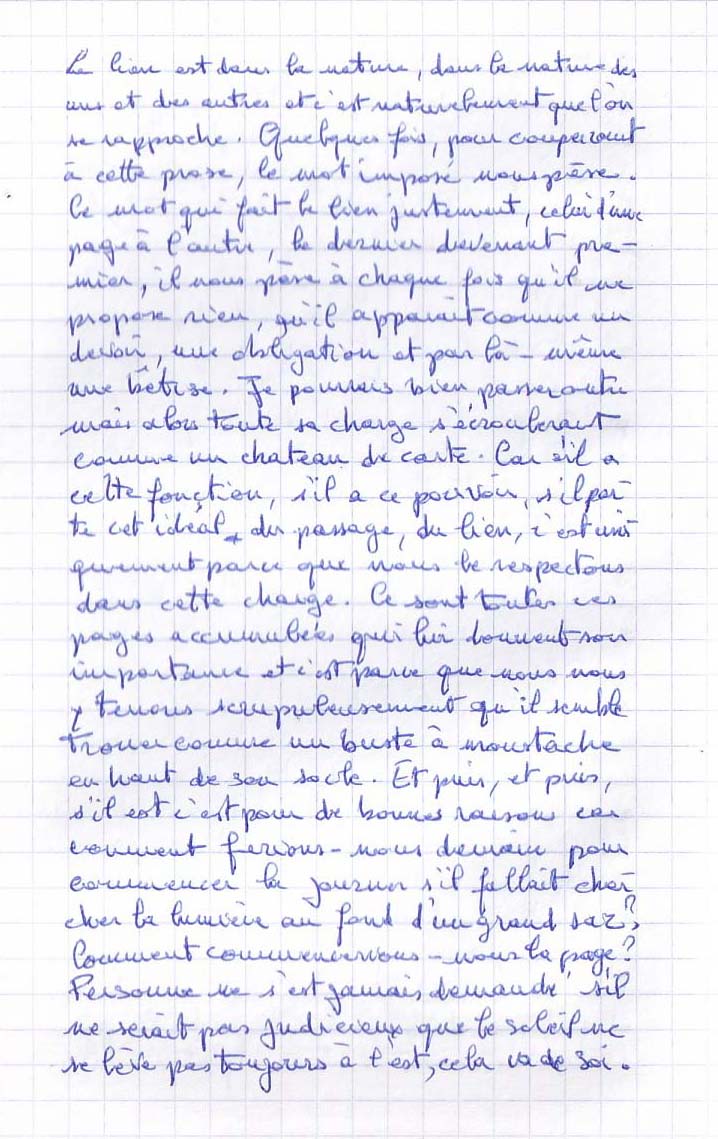 Le lien est dans la nature, dans la nature des
uns et des autres et c'est naturellement que l'on
se rapproche. Quelques fois, pour couper court
à cette prose, le mot imposé nous pèse.
Ce mot qui fait le lien justement, celui d'une
page à l'autre, le dernier devenant pre-
mier, il nous pèse à chaque fois qu'il ne
propose rien, qu'il apparaît comme un
devoir, une obligation et par là-même
une bêtise. Je pourrais bien passer outre
mais alors toute sa charge s'écroulerait
comme un chateau de carte. Car s'il a
cette fonction, s'il a ce pouvoir, s'il por-
te cet idéal du passage, du lien, c'est uni
quement parce que nous le respectons
dans cette charge. Ce sont toutes ces
pages accumulées qui lui donnent son
importance et c'est parce que nous nous
y tenons scrupuleusement qu'il semble
troner comme un buste à moustache
en haut de son socle. Et puis, et puis,
s'il est c'est pour de bonnes raisons car
comment ferions-nous demain pour
commencer la journée s'il fallait cher
cher la lumière au fond d'un grand sac?
Comment commencerions-nous la page?
Personne ne s'est jamais demandé s'il
ne serait pas judicieux que le soleil ne
se lève pas toujours à l'est, cela va de soi.